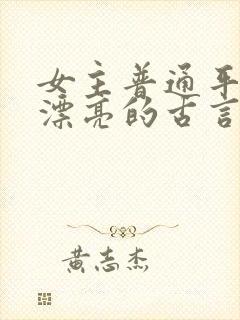 女主普通平
漂亮的古言
黄志杰